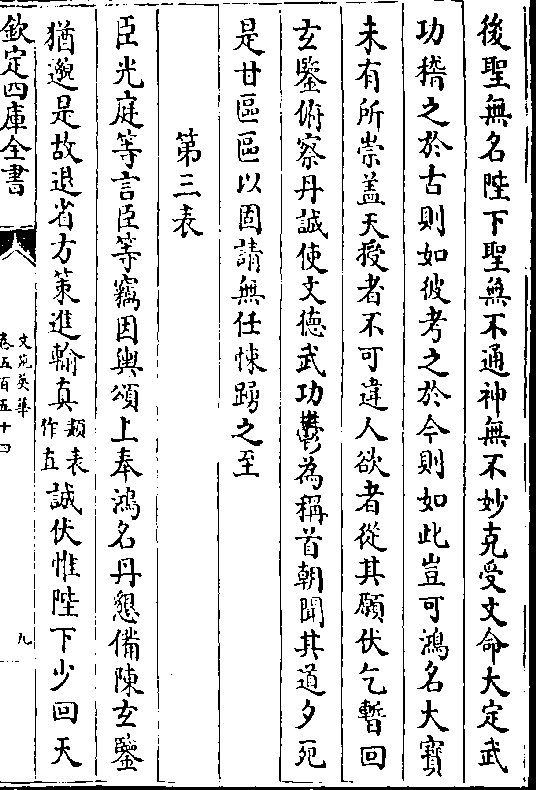 後聖無名陛下聖無不通神無不妙克受文命大定武
功稽之於古則如彼考之於今則如此豈可鴻名大寶
未有所崇盖天授者不可違人欲者從其願伏乞暫回
玄鑒俯察丹誠使文德武功鬱為稱首朝聞其道夕死
是甘區區以固請無任悚踴之至
第三表
臣光庭等言臣等竊因輿頌上奉鴻名丹懇備陳玄鑒
猶邈是故退省方策進輸真類表作直誠伏惟陛下少回天
欽定四庫全書
文苑英華
卷五百五十四
九